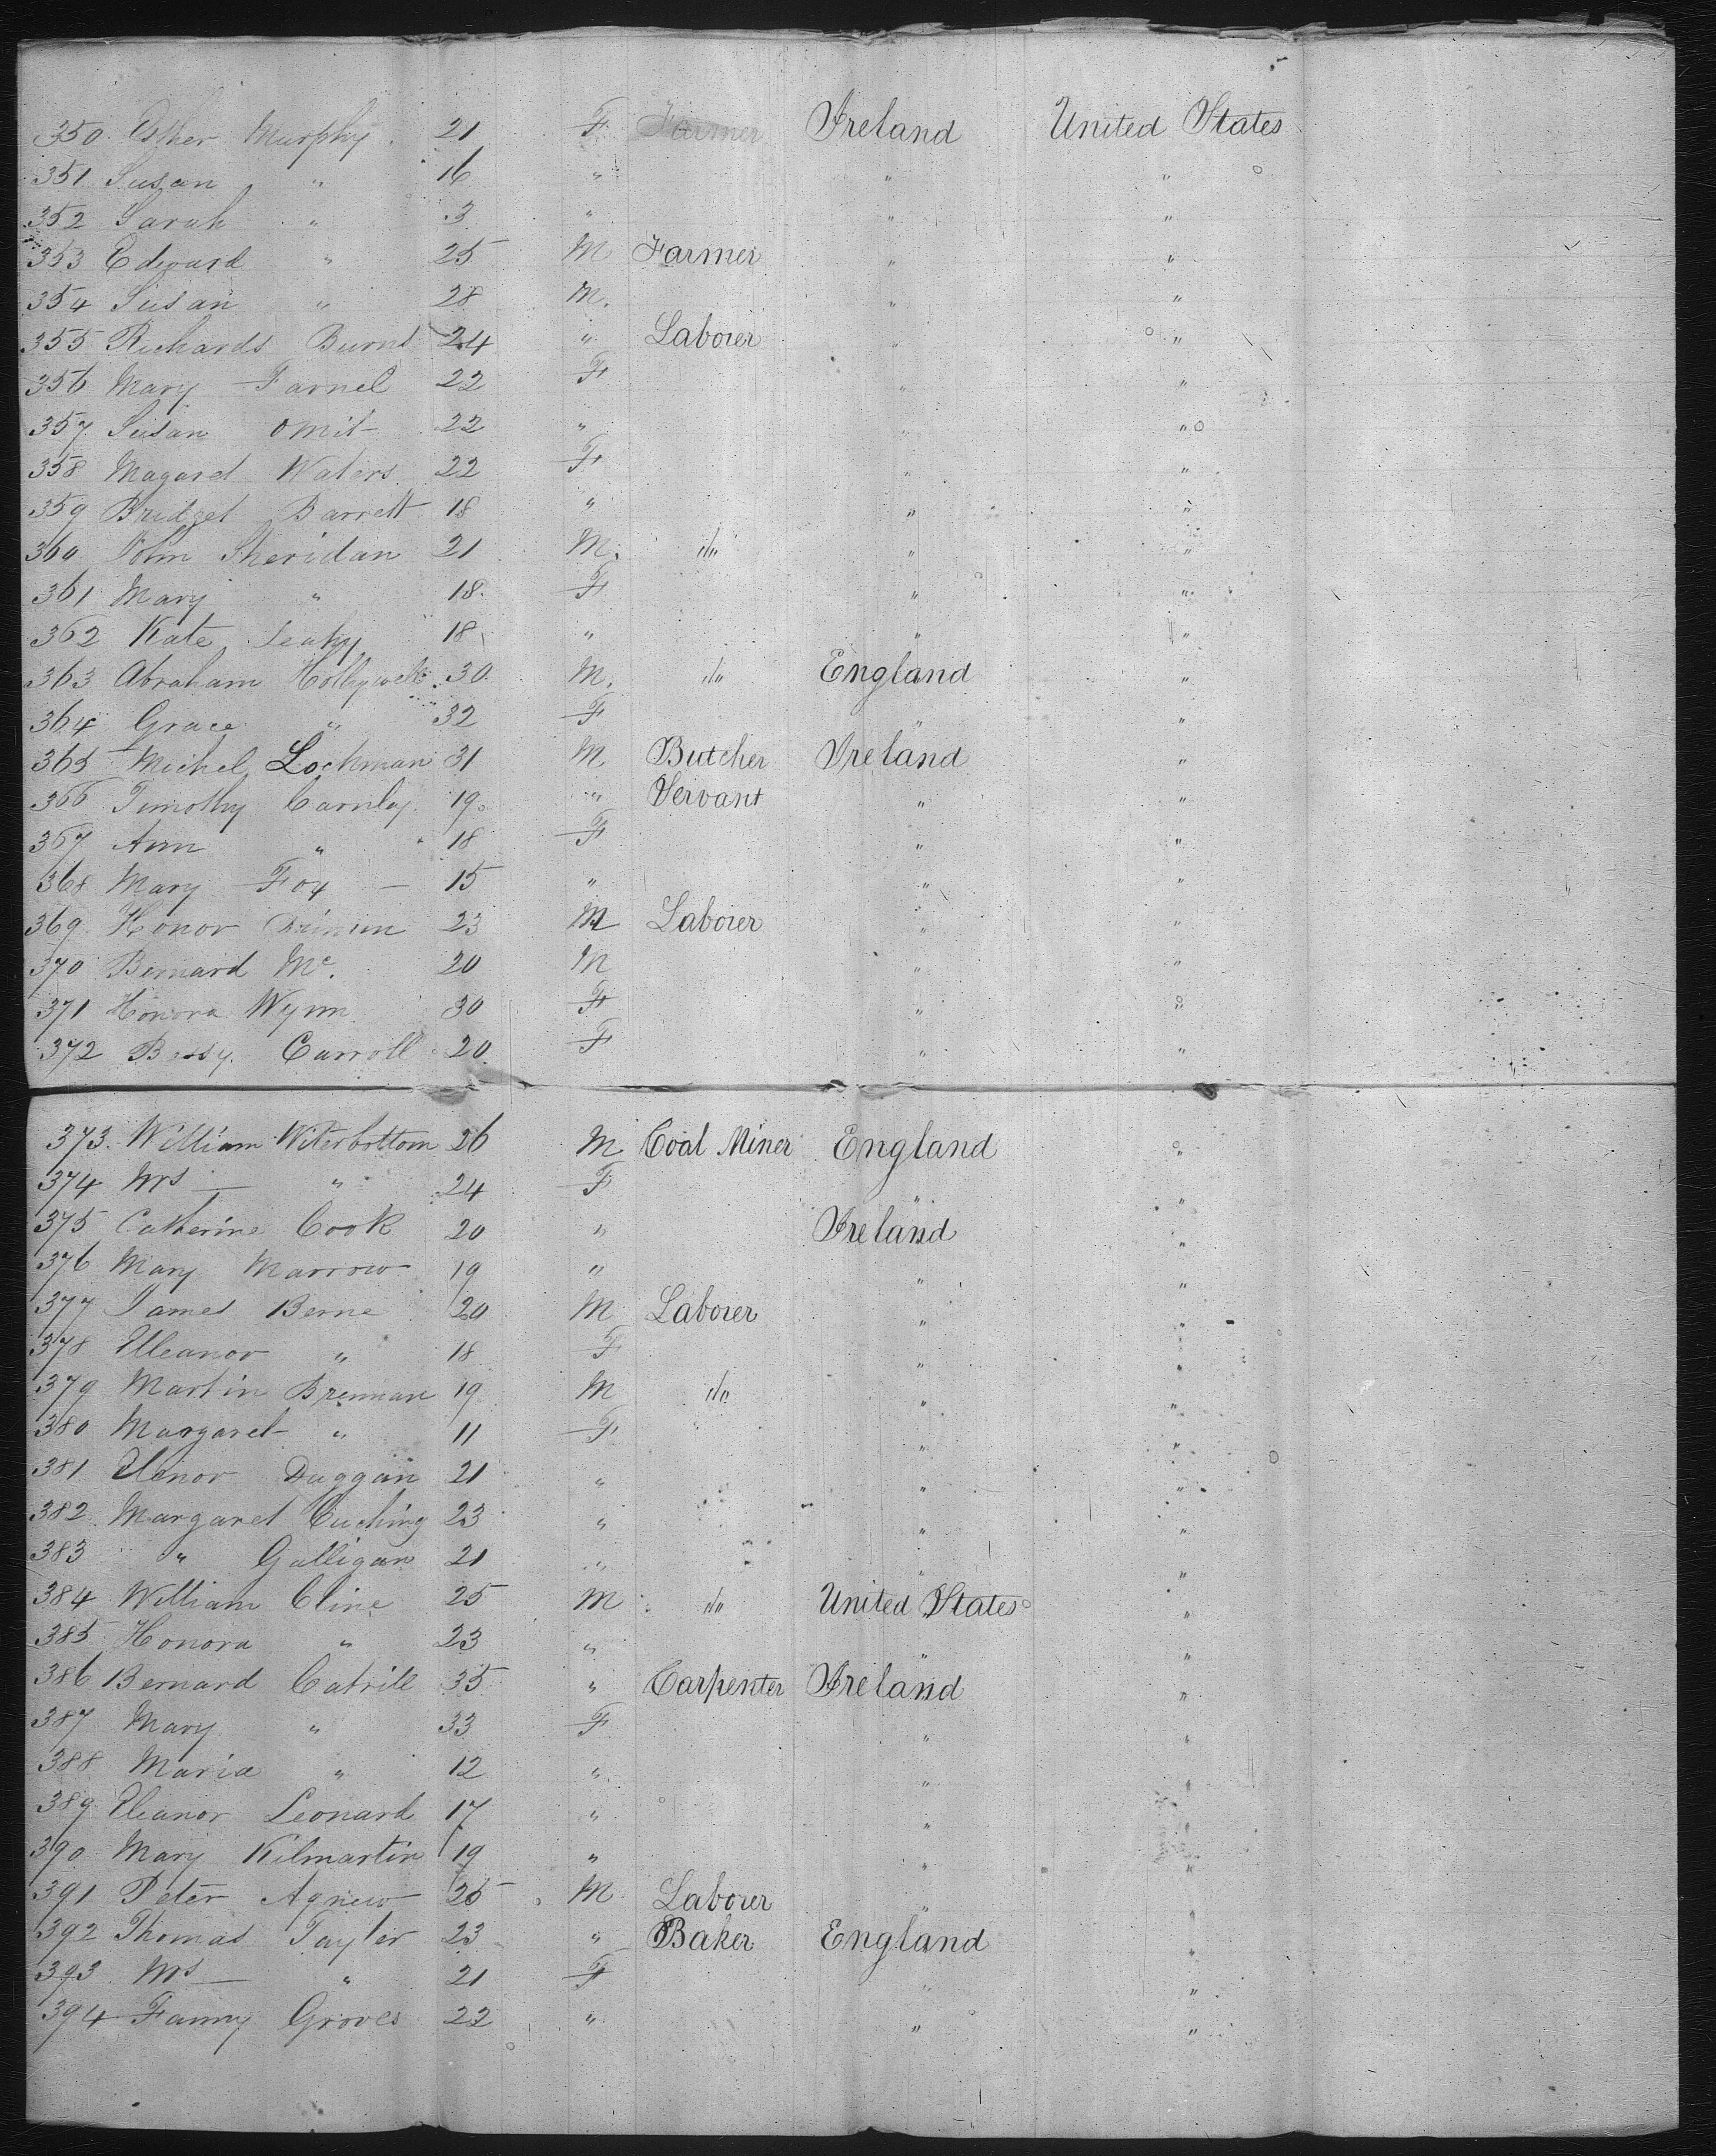 350 Esther Murphy 21 F Farmer Ireland United States
351 Susan " 16 " " "
352 Sarah " 3 " " "
353 Edward " 25 M Farmer " "
354 Susan " 28 M. " "
355 Richards Burns 24 " Laborer " "
356 Mary Farnel 22 F " "
357 Susan omit 22 " " "
358 Magaret Waters 22 F " "
359 Bridget Barrett 18 " " "
360 John Sheridan 21 M. do " "
361 Mary " 18 F " "
362 Kate Leahy 18 " " "
363 Abraham 30 M. do England "
364 Grace " 32 F " "
365 Michel Lockman 31 M Butcher Ireland "
366 Timothy Carnley 19 " Servant " "
367 Ann " 18 F " "
368 Mary Fox — 15 " " "
369 Honor 23 M Laborer " "
370 Bernard Mc. 20 M " "
371 Honora Wynn 30 F " "
372 Bessy Carroll 20 F " "
373 William Witerbottom 26 M Coal Miner England "
374 Mrs — " 24 F " "
375 Catherine Cook 20 " Ireland "
376 Mary Marrow 19 " " "
377 James Berne 20 M Laborer " "
378 Elleanor " 18 F " "
379 Martin Brennan 19 M do " "
380 Margaret " 11 F " "
381 Elenor Duggan 21 " " "
382 Margaret Cuching 23 " " "
383 " Galligan 21 " " "
384 William Cline 25 M do United States "
385 Honora " 23 " " "
386 Bernard Catrill 35 " Carpenter Ireland "
387 Mary " 33 F " "
388 Maria " 12 " " "
389 Eleanor Leonard 17 " " "
390 Mary Kilmartin 19 " " "
391 Peter Agnew 25 M Laborer " "
392 Thomas Taylor 23 " Baker England "
393 Mrs — " 21 F " "
394 Fanny Groves 22 " " "